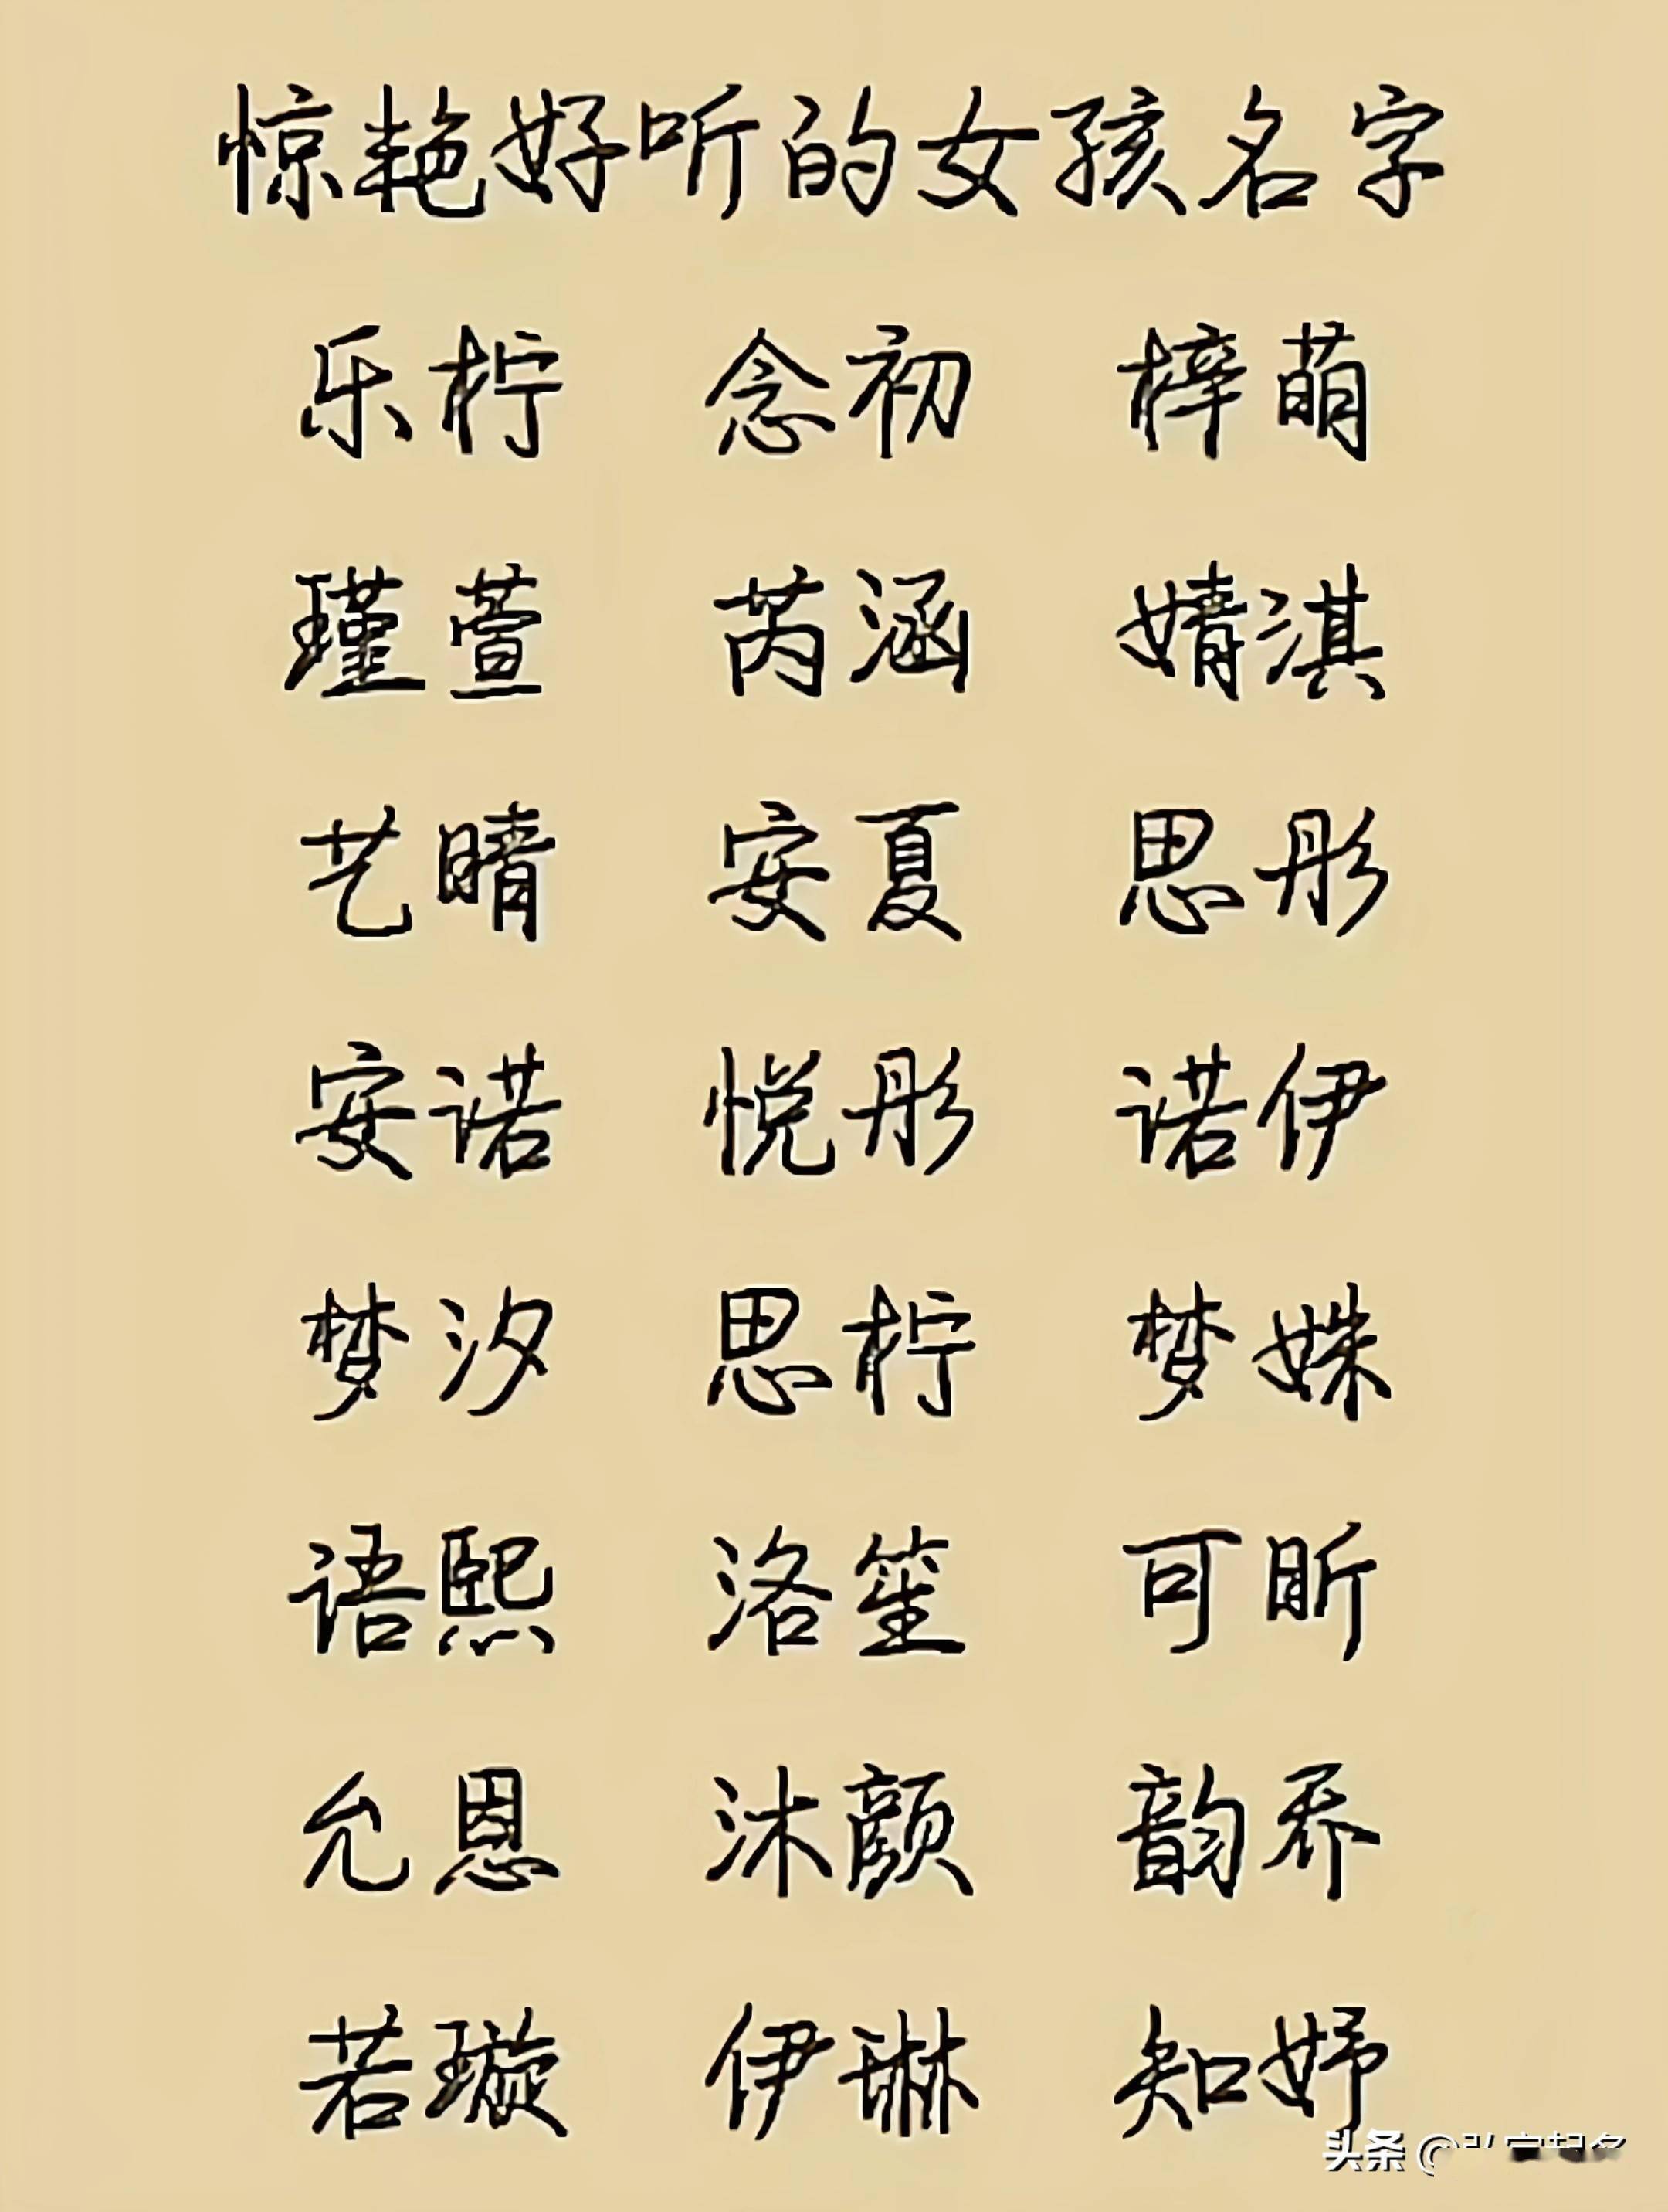 惊艳好听的女孩名字
乐柠 念初 梓萌
瑾萱 芮涵 婧淇
艺晴 安夏 思彤
安诺 悦彤 诺伊
梦汐 思柠 梦姝
语熙 洛笙 可昕
允恩 沐颜 韵乔
若璇 伊琳 知妤
头条 @